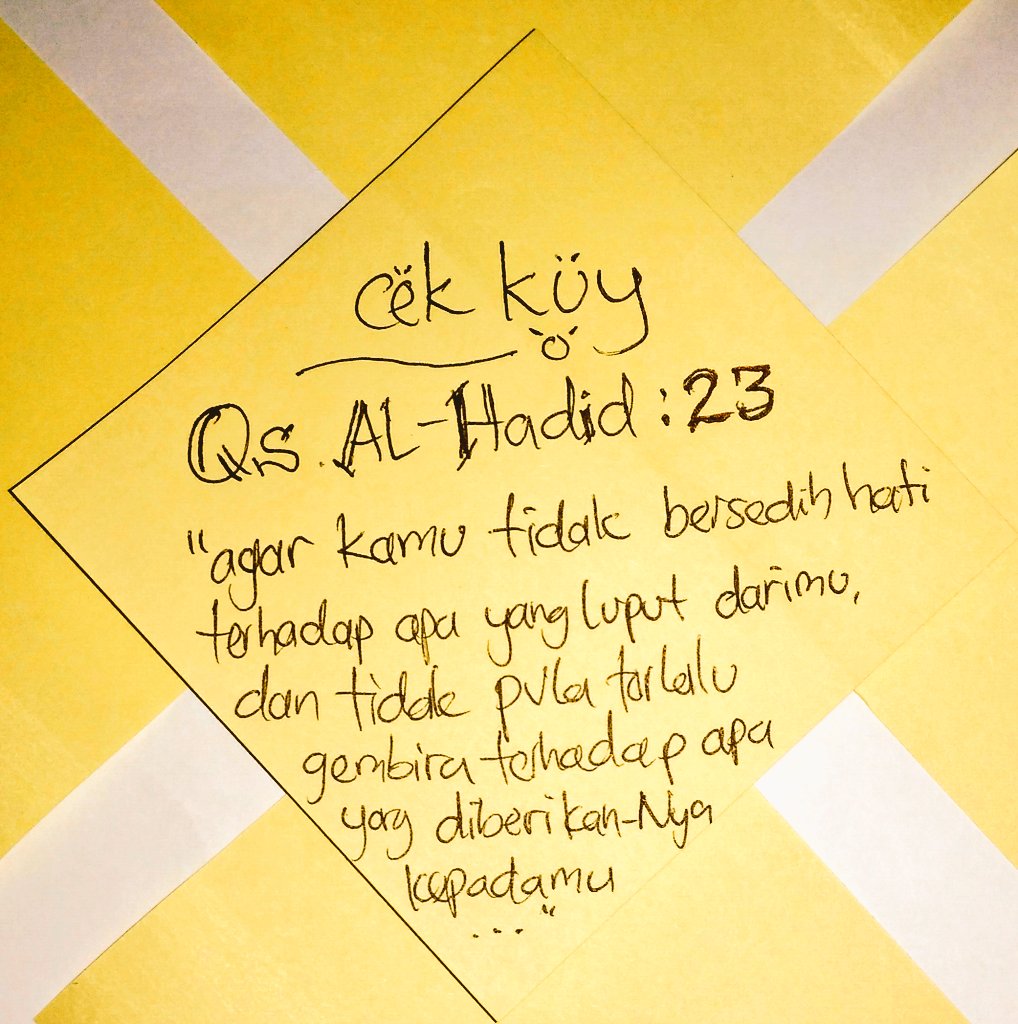 cëk küy
Qs. AL-Hadid : 23
"agar kamu tidak bersedih hati
terhadap apa yang luput darimu,
dan tidak pula terlalu
gembira terhadap apa
yang diberikan-Nya
kepadamu
..."